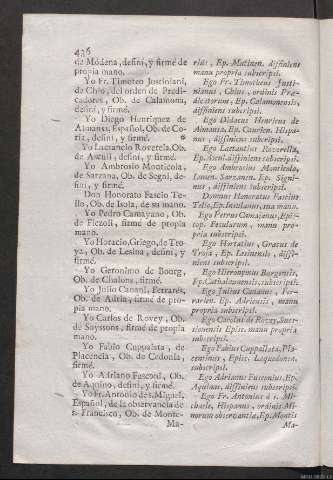 436
de Módena, definí, y firmé de
propia mano.
Yo Fr. Timoteo Justiniani,
de Chio, del orden de Predi-
cadores, Ob. de Calamona,
definí, y firmé.
Yo Diego Henriquez de
Almansa, Español, Ob. de Co-
ria, definí, y firmé.
Yo Lactancio Roverela, Ob.
de Asculi, definí, y firmé.
Yo Ambrosio Monticola,
de Sarzana, Ob. de Segni, de-
finí, y firmé.
Don Honorato Fascio Te-
llo, Ob. de Isola, de su mano.
Yo Pedro Camayano, Ob.
de Fiezoli, firmé de propia
mano.
Yo Horacio, Griego, de Tro-
ya, Ob. de Lesina, definí, y
firmé.
Yo Geronimo de Bourg,
Ob. de Chalons, firmé.
Yo Julio Canani, Ferrarés,
Ob. de Adria, firmé de propia
mano.
Yo Carlos de Rovey, Ob.
de Soyssons, firmé de propia
mano.
Yo Fabio Cuppalata, de
Placencia, Ob. de Cedonia,
firmé.
Yo Adriano Fusconi, Ob.
de Aquino, definí, y firmé.
Yo Fr. Antonio de s. Miguel,
Español, de la observancia de
s. Francisco, Ob. de Monte-
Ma-
riás, Ep. Mutinen. diffiniens
manu propria subscripsi.
Ego Fr. Timotheus Justi-
nianus, Chius, ordinis Præ-
dicatorum, Ep. Calamonensis,
diffiniens subscripsi.
Ego Didacus Henricus de
Almansa, Ep. Caurien. Hispa-
nus, diffiniens subscripsi.
Ego Lactantius Roverella,
Ep. Ascul. diffiniens subscripsi.
Ego Ambrosius Monticola,
Lunen. Sarzanen. Ep. Signi-
nus, diffiniens subscripsi.
Domnus Honoratus Fascius
Tello, Ep. Insulanus, sua manu.
Ego Petrus Camajanus, Epis-
cop. Fesularum, manu pro-
pria subscripsi.
Ego Horatius, Græcus de
Troja, Ep. Lesinensis, diffi-
niens subscripsi.
Ego Hieronymus Burgensis,
Ep. Cathalaunensis, subscripsi.
Ego Julius Cananus, Fer-
rarien. Ep. Adriensis, manu
propria subscripsi.
Ego Carolus de Rovey, Sues-
sionensis Episc. manu propria
subscripsi.
Ego Fabius Cuppallata, Pla-
centinus, Episc. Laquedonien.
subscripsi.
Ego Adrianus Fusconius, Ep.
Aquinas, diffiniens subscripsi.
Ego Fr. Antonius à s. Mi-
chaele, Hispanus, ordinis Mi-
norum observantiæ, Ep. Montis
Ma-